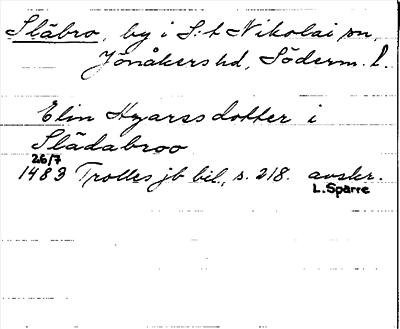 Släbro, by i S:t Nikolai sn,
Jönåkers hd, Söderm. l.
Elin Hyarssdotter i
Slädabroo
26/7
1483 Trolles jb bil., s. 218. avskr.
L. Sparre